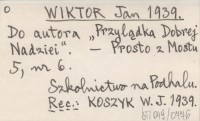 o WIKTOR Jan 1939.
Do autora „Przylądka Dobrej
Nadziei". — Prosto z Mostu
5, nr 6.
Szkolnictwo na Podhalu.
Rec.: KOSZYK W. J. 1939.